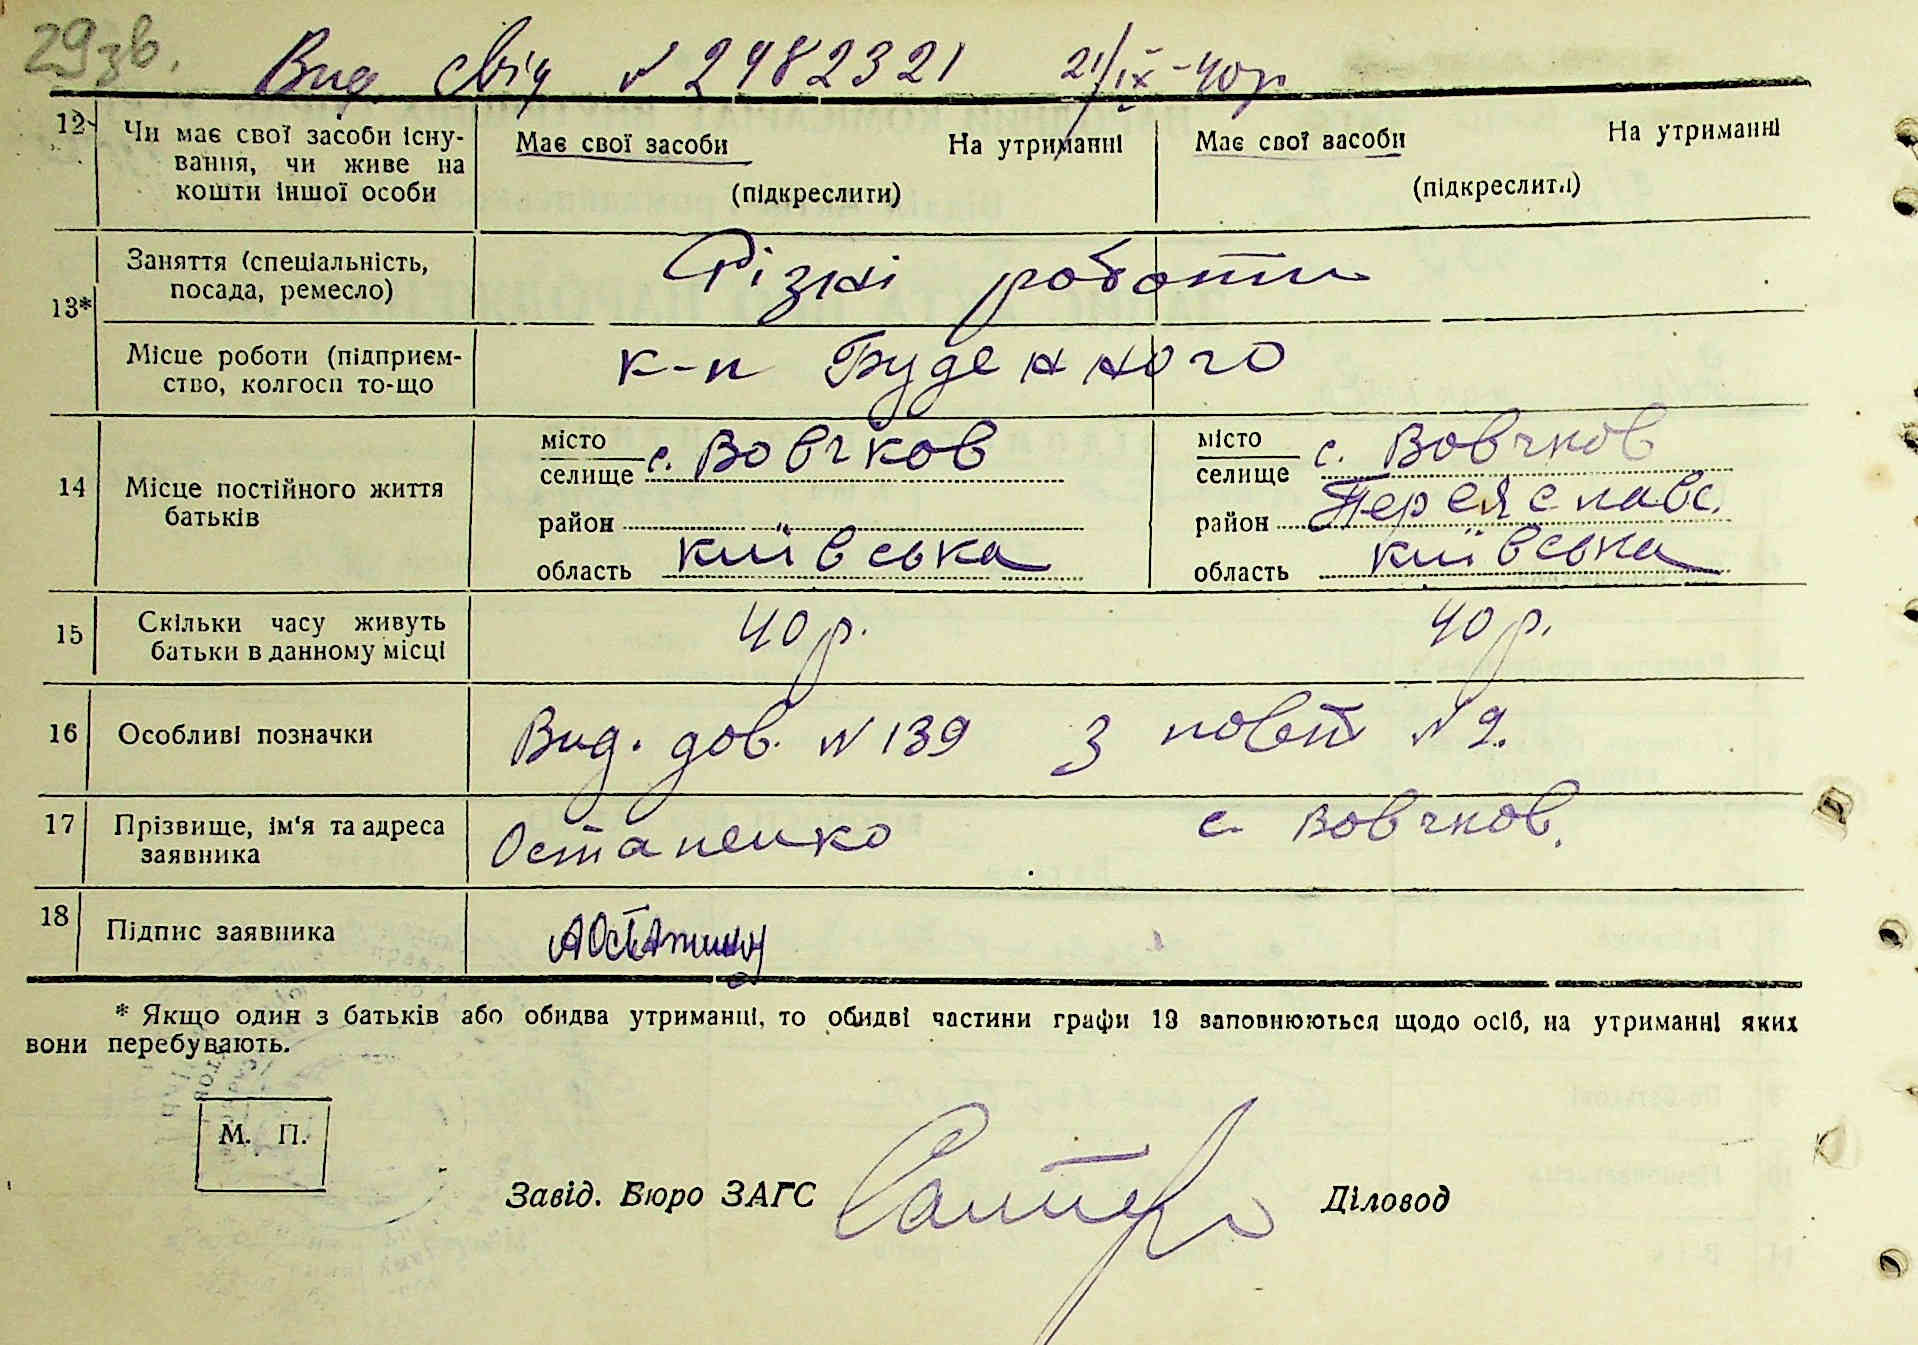 29зв.
Вид. свід № 2482321 21/IX-40р
12 Чи має свої засоби існу-
вання, чи живе на
кошти іншої особи
Має свої засоби На утриманні
(підкреслити)
Має свої засоби На утриманні
(підкреслити)
13*
Заняття (спеціальність,
посада, ремесло)
Різні роботи
Місце роботи (підприєм-
ство, колгосп то-що
к-п Буденного
14 Місце постійного життя
батьків
місто
селище с. Вовчков
район
область київська
місто
селище с. Вовчков
район Переяславс.
область київська
15 Скільки часу живуть
батьки в данному місці
40 р. 40 р.
16 Особливі позначки
Вид. дов. № 139 з повт № 2.
17 Прізвище, ім'я та адреса
заявника
Остапенко с. Вовчков.
18 Підпис заявника
* Якщо один з батьків або обидва утриманці, то обидві частини графи 13 заповнюються щодо осіб, на утриманні яких
вони перебувають.
М. П.
Завід. Бюро ЗАГС Діловод